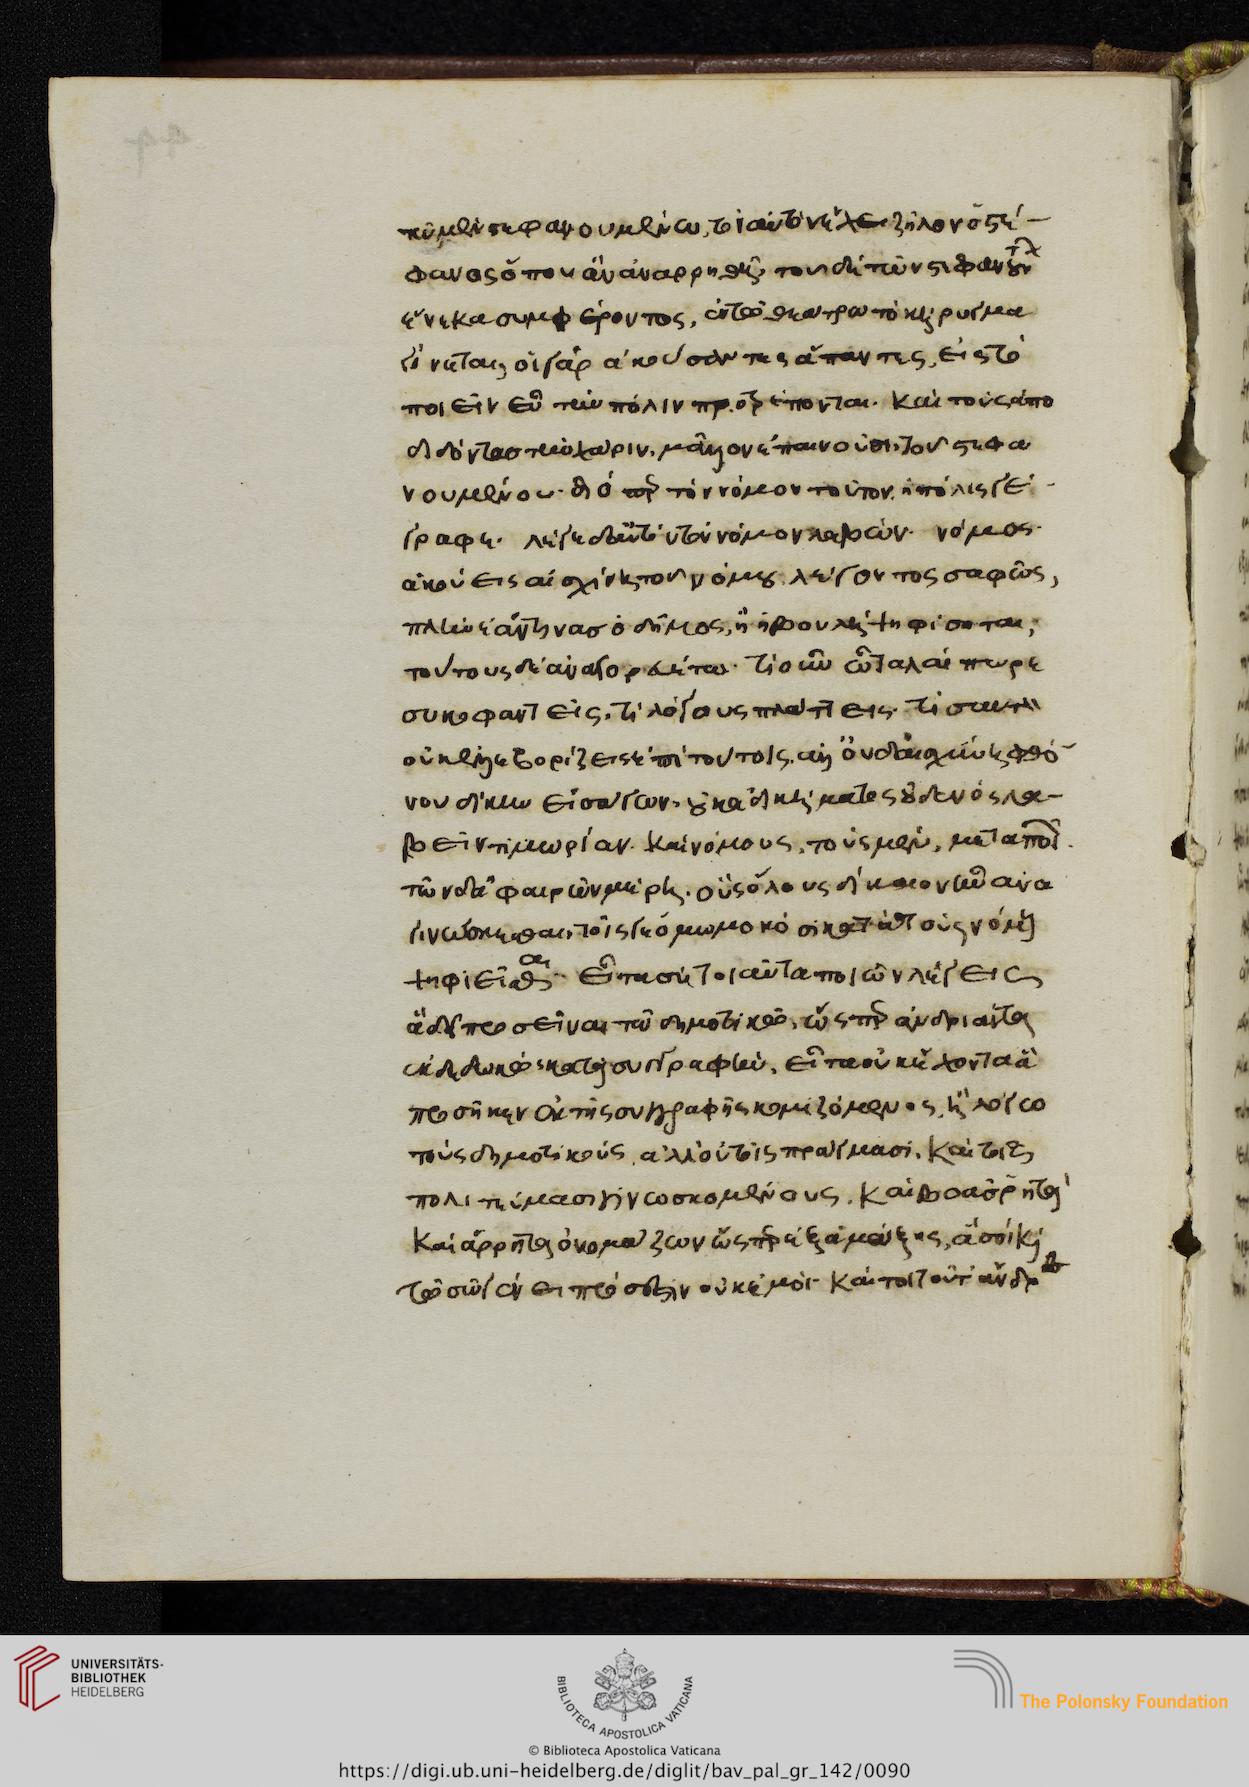 τῷ μὲν στεφανουμένῳ, τὸν αὐτὸν ἔχει ζῆλον ὁ στέ-
φανος ὅπου ἂν ἀναρρηθῇ, τοῦ δὲ τῶν στεφανούντων
ἕνεκα συμφέροντος, ἐν τῷ θεάτρῳ τὸ κήρυγμα
γίνεται, οἱ γὰρ ἀκούσαντες ἅπαντες, εἰς τὸ
ποιεῖν εὖ τὴν πόλιν προτρέπονται. καὶ τοὺς ἀπο
διδόντας τὴν χάριν, μᾶλλον ἐπαινοῦσι, τοῦ στεφα
νουμένου. διὸ τὸν νόμον τοῦτον ἡ πόλις γέ-
γραφε. λέγε δ' αὐτόν μοι τὸν νόμον λαβών. νόμος.
ἀκούεις αἰσχίνη τοῦ νόμου λέγοντος σαφῶς,
πλὴν ἐάν τινας ὁ δῆμος, ἢ ἡ βουλὴ ψηφίσηται,
τούτους δὲ ἀναγορευέτω. τί οὖν ὦ ταλαίπωρε
συκοφαντεῖς, τί λόγους πλάττεις. τί σαυτὸν
οὐκ ἐλλεβορίζεις ἐπὶ τούτοις. ἀλλ' οὐδ' αἰσχύνῃ φθό-
νου δίκην εἰσάγων, οὐκ ἀδικήματος οὐδενὸς λα-
βεῖν τιμωρίαν. καὶ νόμους, τοὺς μὲν, μεταποιῶν.
τῶν δ' ἀφαιρῶν μέρη. οὓς ὅλους δίκαιον ἦν ἀνα
γινώσκεσθαι, τοῖς γε ὀμωμοκόσι κατὰ τοὺς νόμους
ψηφιεῖσθαι. ἔπειτα τοιαῦτα ποιῶν λέγεις
ἃ δεῖ προσεῖναι τῷ δημοτικῷ, ὥσπερ ἀνδριάντα
ἐκδεδωκὼς κατὰ συγγραφὴν, εἶτα οὐκ ἔχοντα ἃ
προσῆκεν ἐκ τῆς συγγραφῆς κομιζόμενος, ἢ λόγῳ
τοὺς δημοτικούς, ἀλλ' οὐ τοῖς πράγμασι, καὶ τοῖς
πολιτεύμασι γινωσκομένους. καὶ βοᾷς ῥητὰ
καὶ ἄρρητα ὀνομάζων ὥσπερ ἐξ ἁμάξης, ἃ σοὶ καὶ
τῷ σῷ γένει πρόσεστιν οὐκ ἐμοί. καίτοι τοῦτ' ἄνδρες
© Biblioteca Apostolica Vaticana
UNIVERSITÄTS-
BIBLIOTHEK
HEIDELBERG
BIBLIOTECA APOSTOLICA VATICANA
The Polonsky Foundation
https://digi.ub.uni-heidelberg.de/diglit/bav_pal_gr_142/0090